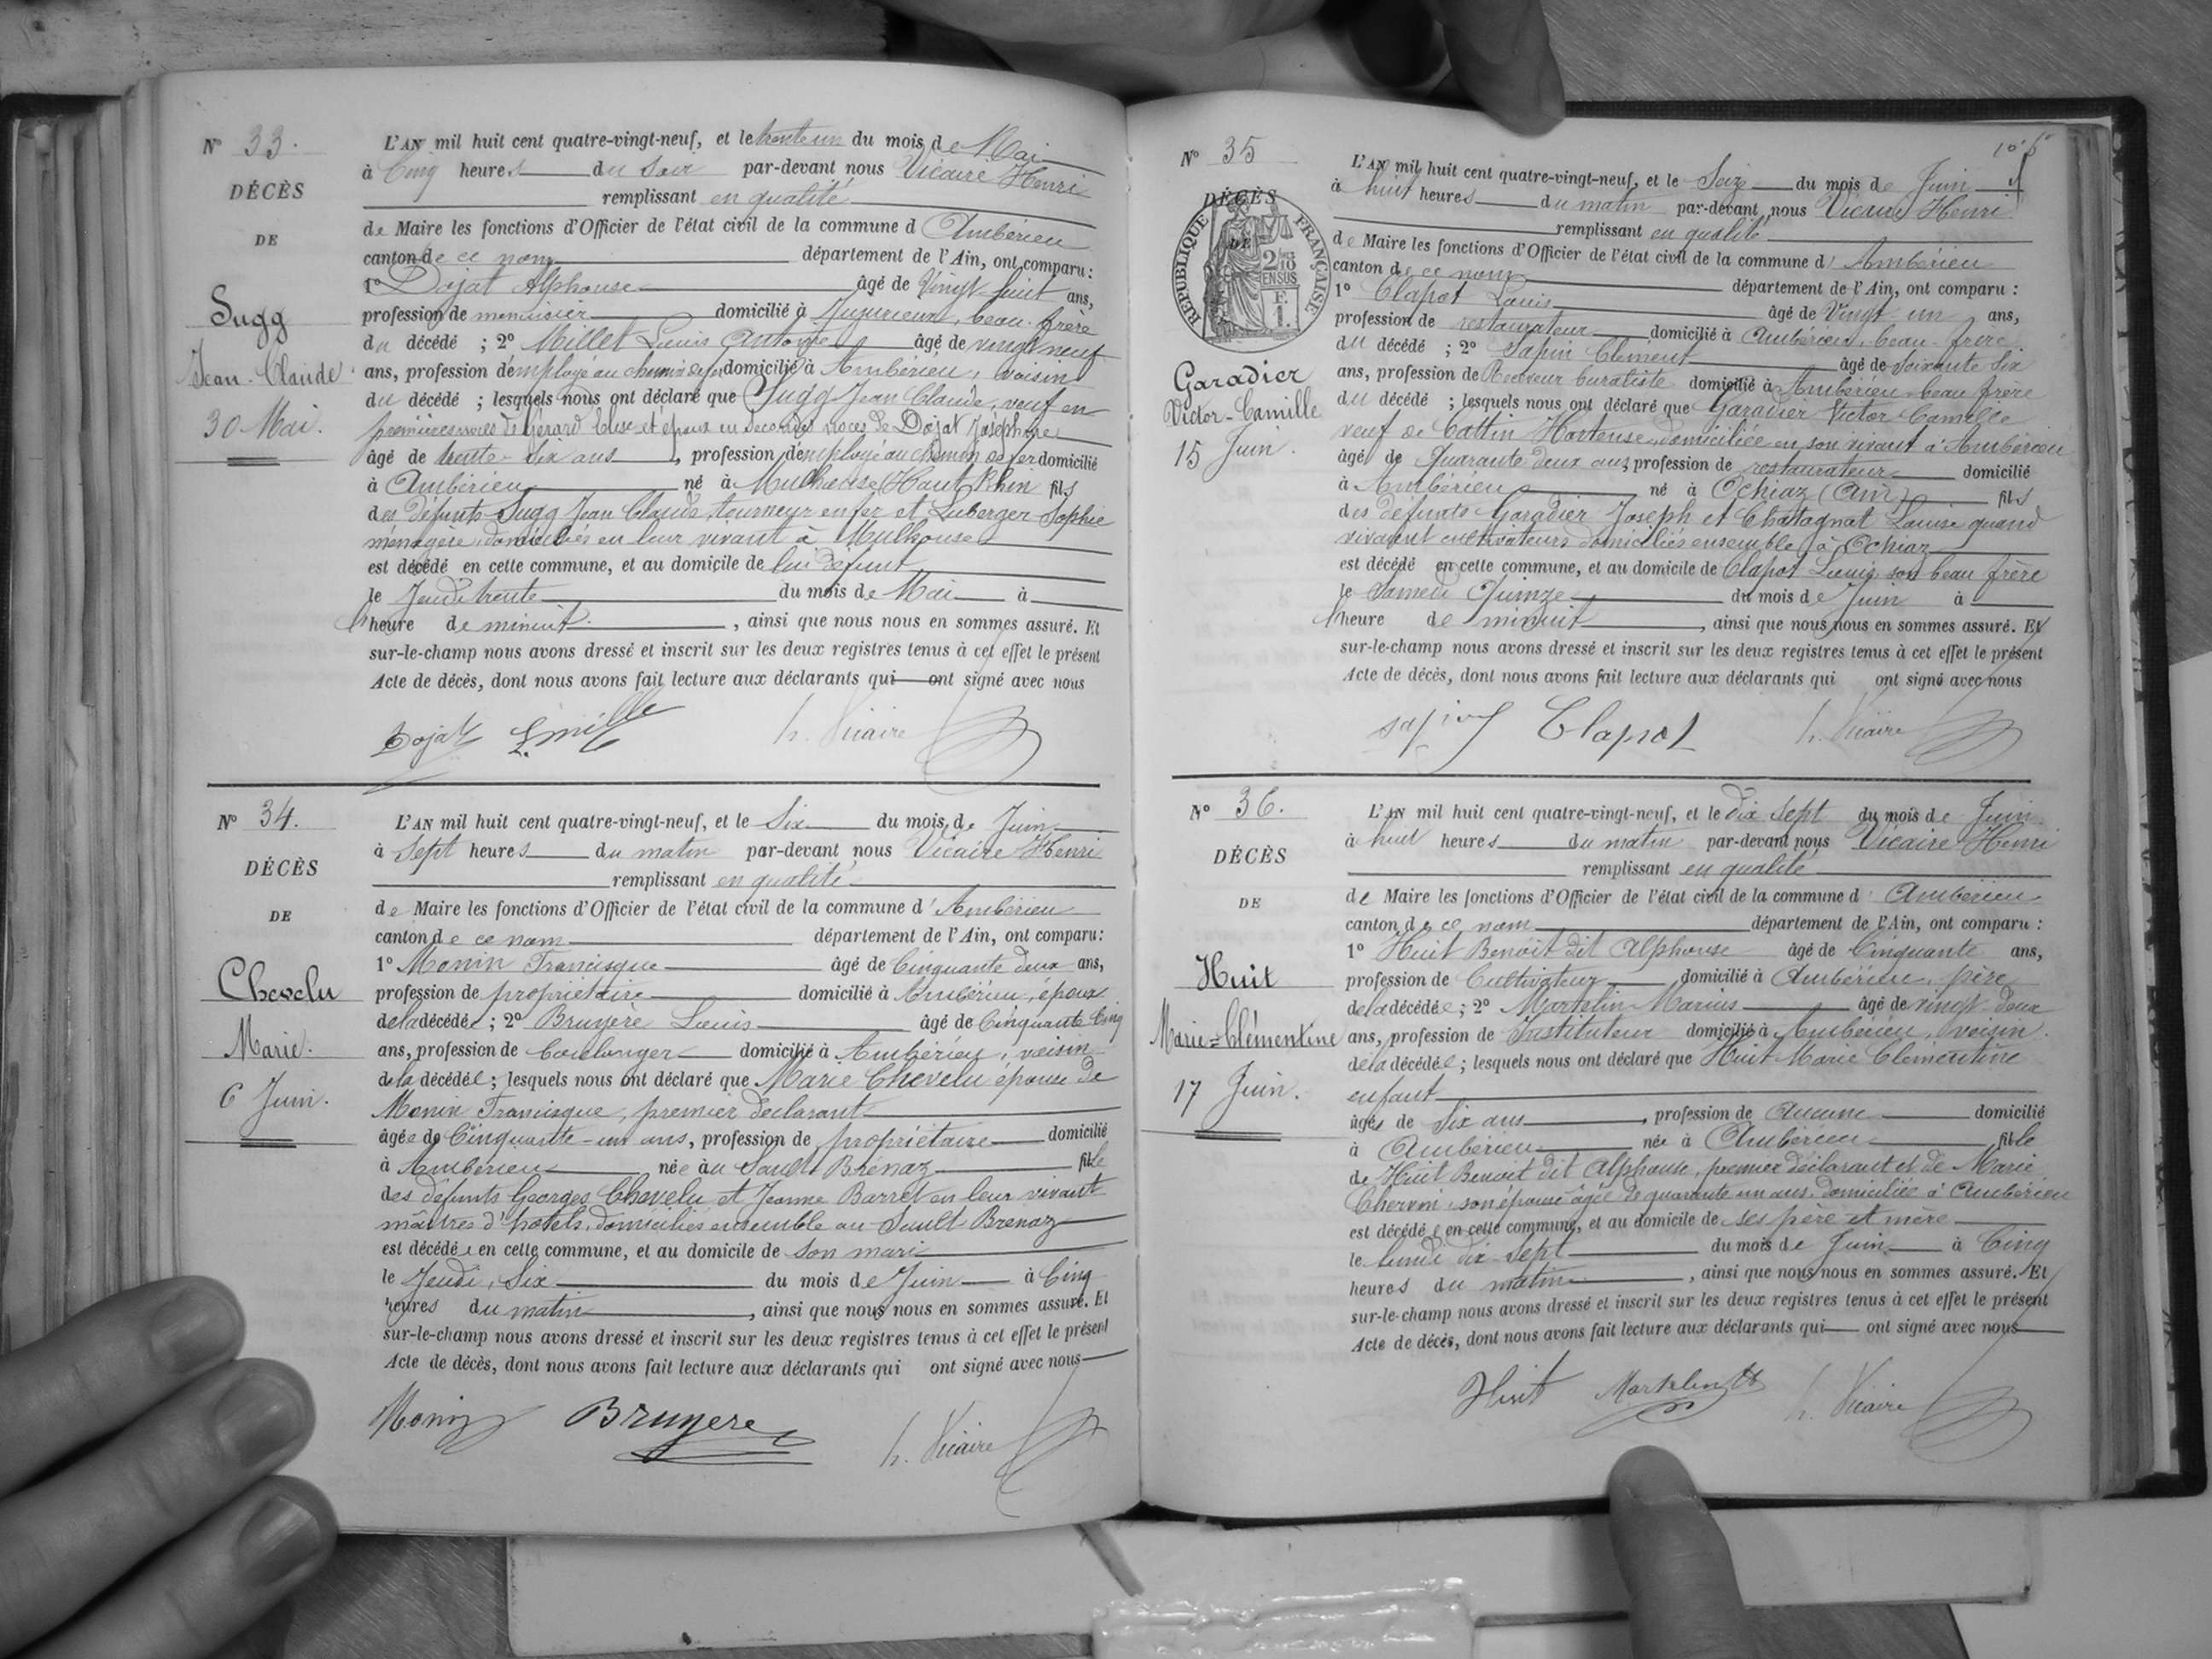 N° 33.
DÉCÈS
DE
Sugg
Jean-Claude
30 Mai.
L'AN mil huit cent quatre-vingt-neuf, et le trente un du mois de Mai
à Cinq heures du soir par-devant nous Vicaire Henri
remplissant en qualité
de Maire les fonctions d'Officier de l'état civil de la commune d Ambérieu
canton de ce nom département de l'Ain, ont comparu :
1° Dojat Alphonse âgé de Vingt huit ans,
profession de menuisier domicilié à Jujurieux, beau-frère
du décédé ; 2° Millet Louis Antoine âgé de vingt neuf
ans, profession d'employé au chemin de fer domicilié à Ambérieu, voisin
du décédé ; lesquels nous ont déclaré que Sugg Jean Claude, veuf en
premières noces de Gérard Elise et époux en secondes noces de Dojat Joséphine
âgé de trente-six ans, profession d'employé au chemin de fer domicilié
à Ambérieu né à Mulhouse (Haut Rhin fils
des défunts Sugg Jean Claude, tourneur en fer et Luberger Sophie
ménagère, domiciliés en leur vivant à Mulhouse
est décédé en cette commune, et au domicile de lui défunt
le Jeudi trente du mois de Mai à
l'heure de minuit, ainsi que nous nous en sommes assuré. Et
sur-le-champ nous avons dressé et inscrit sur les deux registres tenus à cet effet le présent
Acte de décès, dont nous avons fait lecture aux déclarants qui ont signé avec nous
Dojat L. mille h. Vicaire
N° 34.
DÉCÈS
DE
Chevelu
Marie.
6 Juin.
L'AN mil huit cent quatre-vingt-neuf, et le Six du mois de Juin
à Sept heures du matin par-devant nous Vicaire Henri
remplissant en qualité
de Maire les fonctions d'Officier de l'état civil de la commune d'Ambérieu
canton de ce nom département de l'Ain, ont comparu :
1° Monin Francisque âgé de Cinquante deux ans,
profession de propriétaire domicilié à Ambérieu, époux
de la décédée ; 2° Bruyère Louis âgé de Cinquante Cinq
ans, profession de boulanger domicilié à Ambérieu, voisin
de la décédée ; lesquels nous ont déclaré que Marie Chevelu épouse de
Monin Francisque, premier déclarant
âgée de Cinquante-un ans, profession de propriétaire domicilié
à Ambérieu née au Sault Brénaz fille
des défunts Georges Chevelu et Jeanne Barret en leur vivant
maîtres d'hotels, domiciliés ensemble au Sault Brenaz
est décédée en cette commune, et au domicile de son mari
le Jeudi, Six du mois de Juin à Cinq
heures du matin, ainsi que nous nous en sommes assuré. Et
sur-le-champ nous avons dressé et inscrit sur les deux registres tenus à cet effet le présent
Acte de décès, dont nous avons fait lecture aux déclarants qui ont signé avec nous
Monin Bruyere h. Vicaire
N° 35
DÉCÈS
DE
RÉPUBLIQUE FRANÇAISE
2/10 EN SUS
Garadier
Victor-Camille
15 Juin.
L'AN mil huit cent quatre-vingt-neuf, et le Seize du mois de Juin
à huit heures du matin par-devant nous Vicaire Henri
remplissant en qualité
de Maire les fonctions d'Officier de l'état civil de la commune d'Ambérieu
canton de ce nom département de l'Ain, ont comparu :
1° Clapot Louis âgé de Vingt un ans,
profession de restaurateur domicilié à Ambérieu, beau-frère
du décédé ; 2° Sapin Clément âgé de Soixante Six
ans, profession de Receveur buraliste domicilié à Ambérieu beau frère
du décédé ; lesquels nous ont déclaré que Garadier Victor Camille
veuf de Cottin Hortense, domiciliée en son vivant à Ambérieu
âgé de Quarante deux ans, profession de restaurateur domicilié
à Ambérieu né à Ochiaz (Ain) fils
des défunts Garadier Joseph et Chatagnat Louise quand
vivaient cultivateurs domiciliés ensemble à Ochiaz
est décédé en cette commune, et au domicile de Clapot Louis son beau frère
le Samedi Quinze du mois de Juin à
l'heure de minuit, ainsi que nous nous en sommes assuré. Et
sur-le-champ nous avons dressé et inscrit sur les deux registres tenus à cet effet le présent
Acte de décès, dont nous avons fait lecture aux déclarants qui ont signé avec nous
sapin Clapot h. Vicaire
N° 36.
DÉCÈS
DE
Huit
Marie=Clémentine
17 Juin.
L'AN mil huit cent quatre-vingt-neuf, et le dix sept du mois de Juin
à huit heures du matin par-devant nous Vicaire Henri
remplissant en qualité
de Maire les fonctions d'Officier de l'état civil de la commune d'Ambérieu
canton de ce nom département de l'Ain, ont comparu :
1° Huit Benoit dit Alphonse âgé de Cinquante ans,
profession de Cultivateur domicilié à Ambérieu, père
de la décédée ; 2° Martelin Marius âgé de vingt-deux
ans, profession de Instituteur domicilié à Ambérieu, voisin
de la décédée ; lesquels nous ont déclaré que Huit Marie Clémentine
enfant
âgée de Six ans, profession de aucune domicilié
à Ambérieu née à Ambérieu fille
de Huit Benoit dit Alphonse, premier déclarant et de Marie
son épouse âgée de quarante un ans, domiciliée à Ambérieu
est décédée en cette commune, et au domicile de ses père et mère
le lundi dix-sept du mois de Juin à Cinq
heures du matin, ainsi que nous nous en sommes assuré. Et
sur-le-champ nous avons dressé et inscrit sur les deux registres tenus à cet effet le présent
Acte de décès, dont nous avons fait lecture aux déclarants qui ont signé avec nous
Huit Martelin h. Vicaire